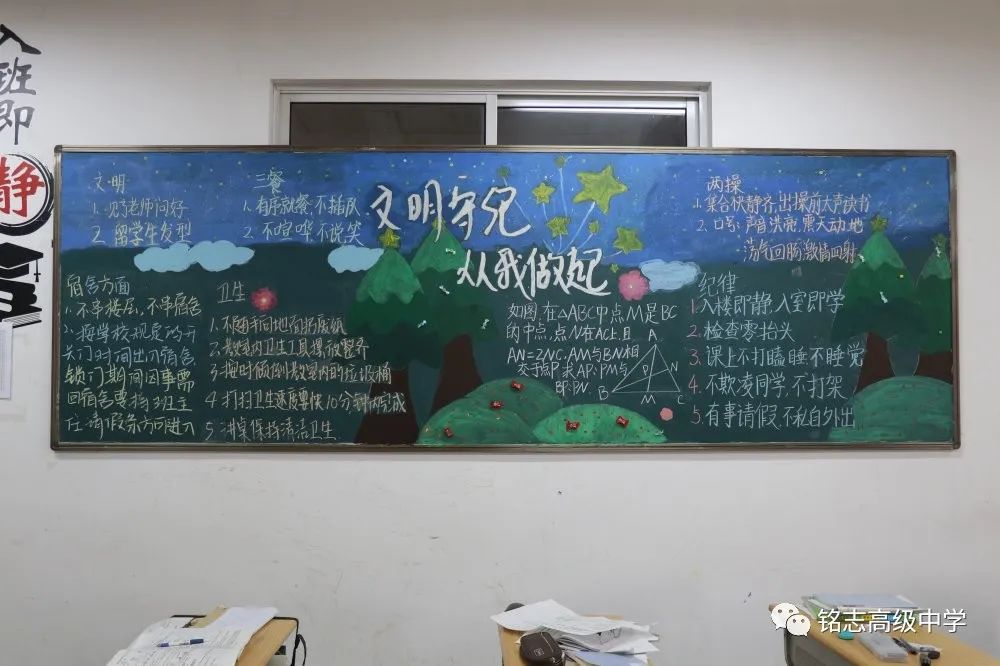 入班即
静
文明
1. 见了老师问好
2. 留学生发型
三餐
1. 有序就餐,不插队
2. 不喧哗,不说笑
文明守纪
从我做起
两操
1. 集合快静齐,出操前大声读书
2. 口号:声音洪亮,震天动地
荡气回肠,激情四射
宿舍方面
1. 不串楼层,不串宿舍
2. 按学校规定的开
关门时间出入宿舍
锁门期间因事需
回宿舍要持班主
任请假条方可进入
卫生
1. 不随手向地面扔废纸
2. 教室内卫生工具摆放整齐
3. 按时倾倒教室内的垃圾桶
4. 打扫卫生速度要快10分钟内完成
5. 讲桌保持清洁卫生
如图,在△ABC中,点M是BC
的中点,点N在AC上,且
AN=2NC,AM与BN相
交于点P,求AP:PM与
BP:PN
A
P
N
B
M
C
纪律
1. 入楼即静,入室即学
2. 检查零抬头
3. 课上不打瞌睡不睡觉
4. 不欺凌同学,不打架
5. 有事请假,不私自外出
铭志高级中学